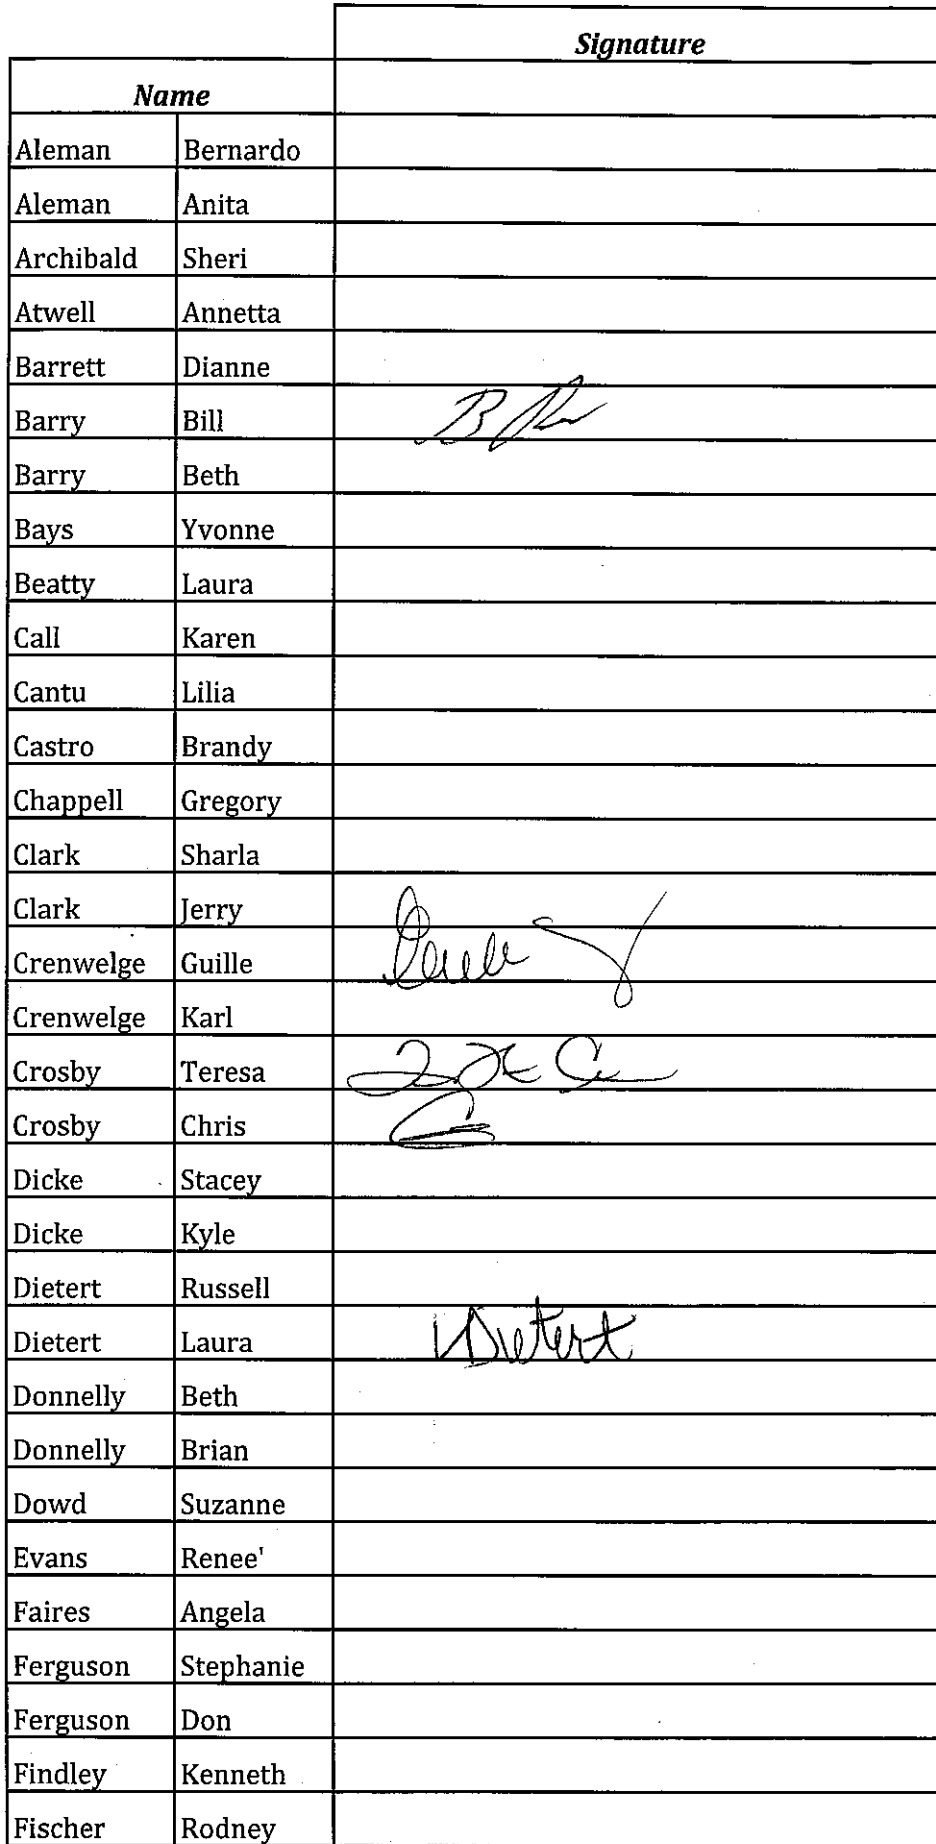 Signature
Name
Aleman Bernardo
Aleman Anita
Archibald Sheri
Atwell Annetta
Barrett Dianne
Barry Bill
Barry Beth
Bays Yvonne
Beatty Laura
Call Karen
Cantu Lilia
Castro Brandy
Chappell Gregory
Clark Sharla
Clark Jerry
Crenwelge Guille
Crenwelge Karl
Crosby Teresa
Crosby Chris
Dicke Stacey
Dicke Kyle
Dietert Russell
Dietert Laura LDietert
Donnelly Beth
Donnelly Brian
Dowd Suzanne
Evans Renee'
Faires Angela
Ferguson Stephanie
Ferguson Don
Findley Kenneth
Fischer Rodney